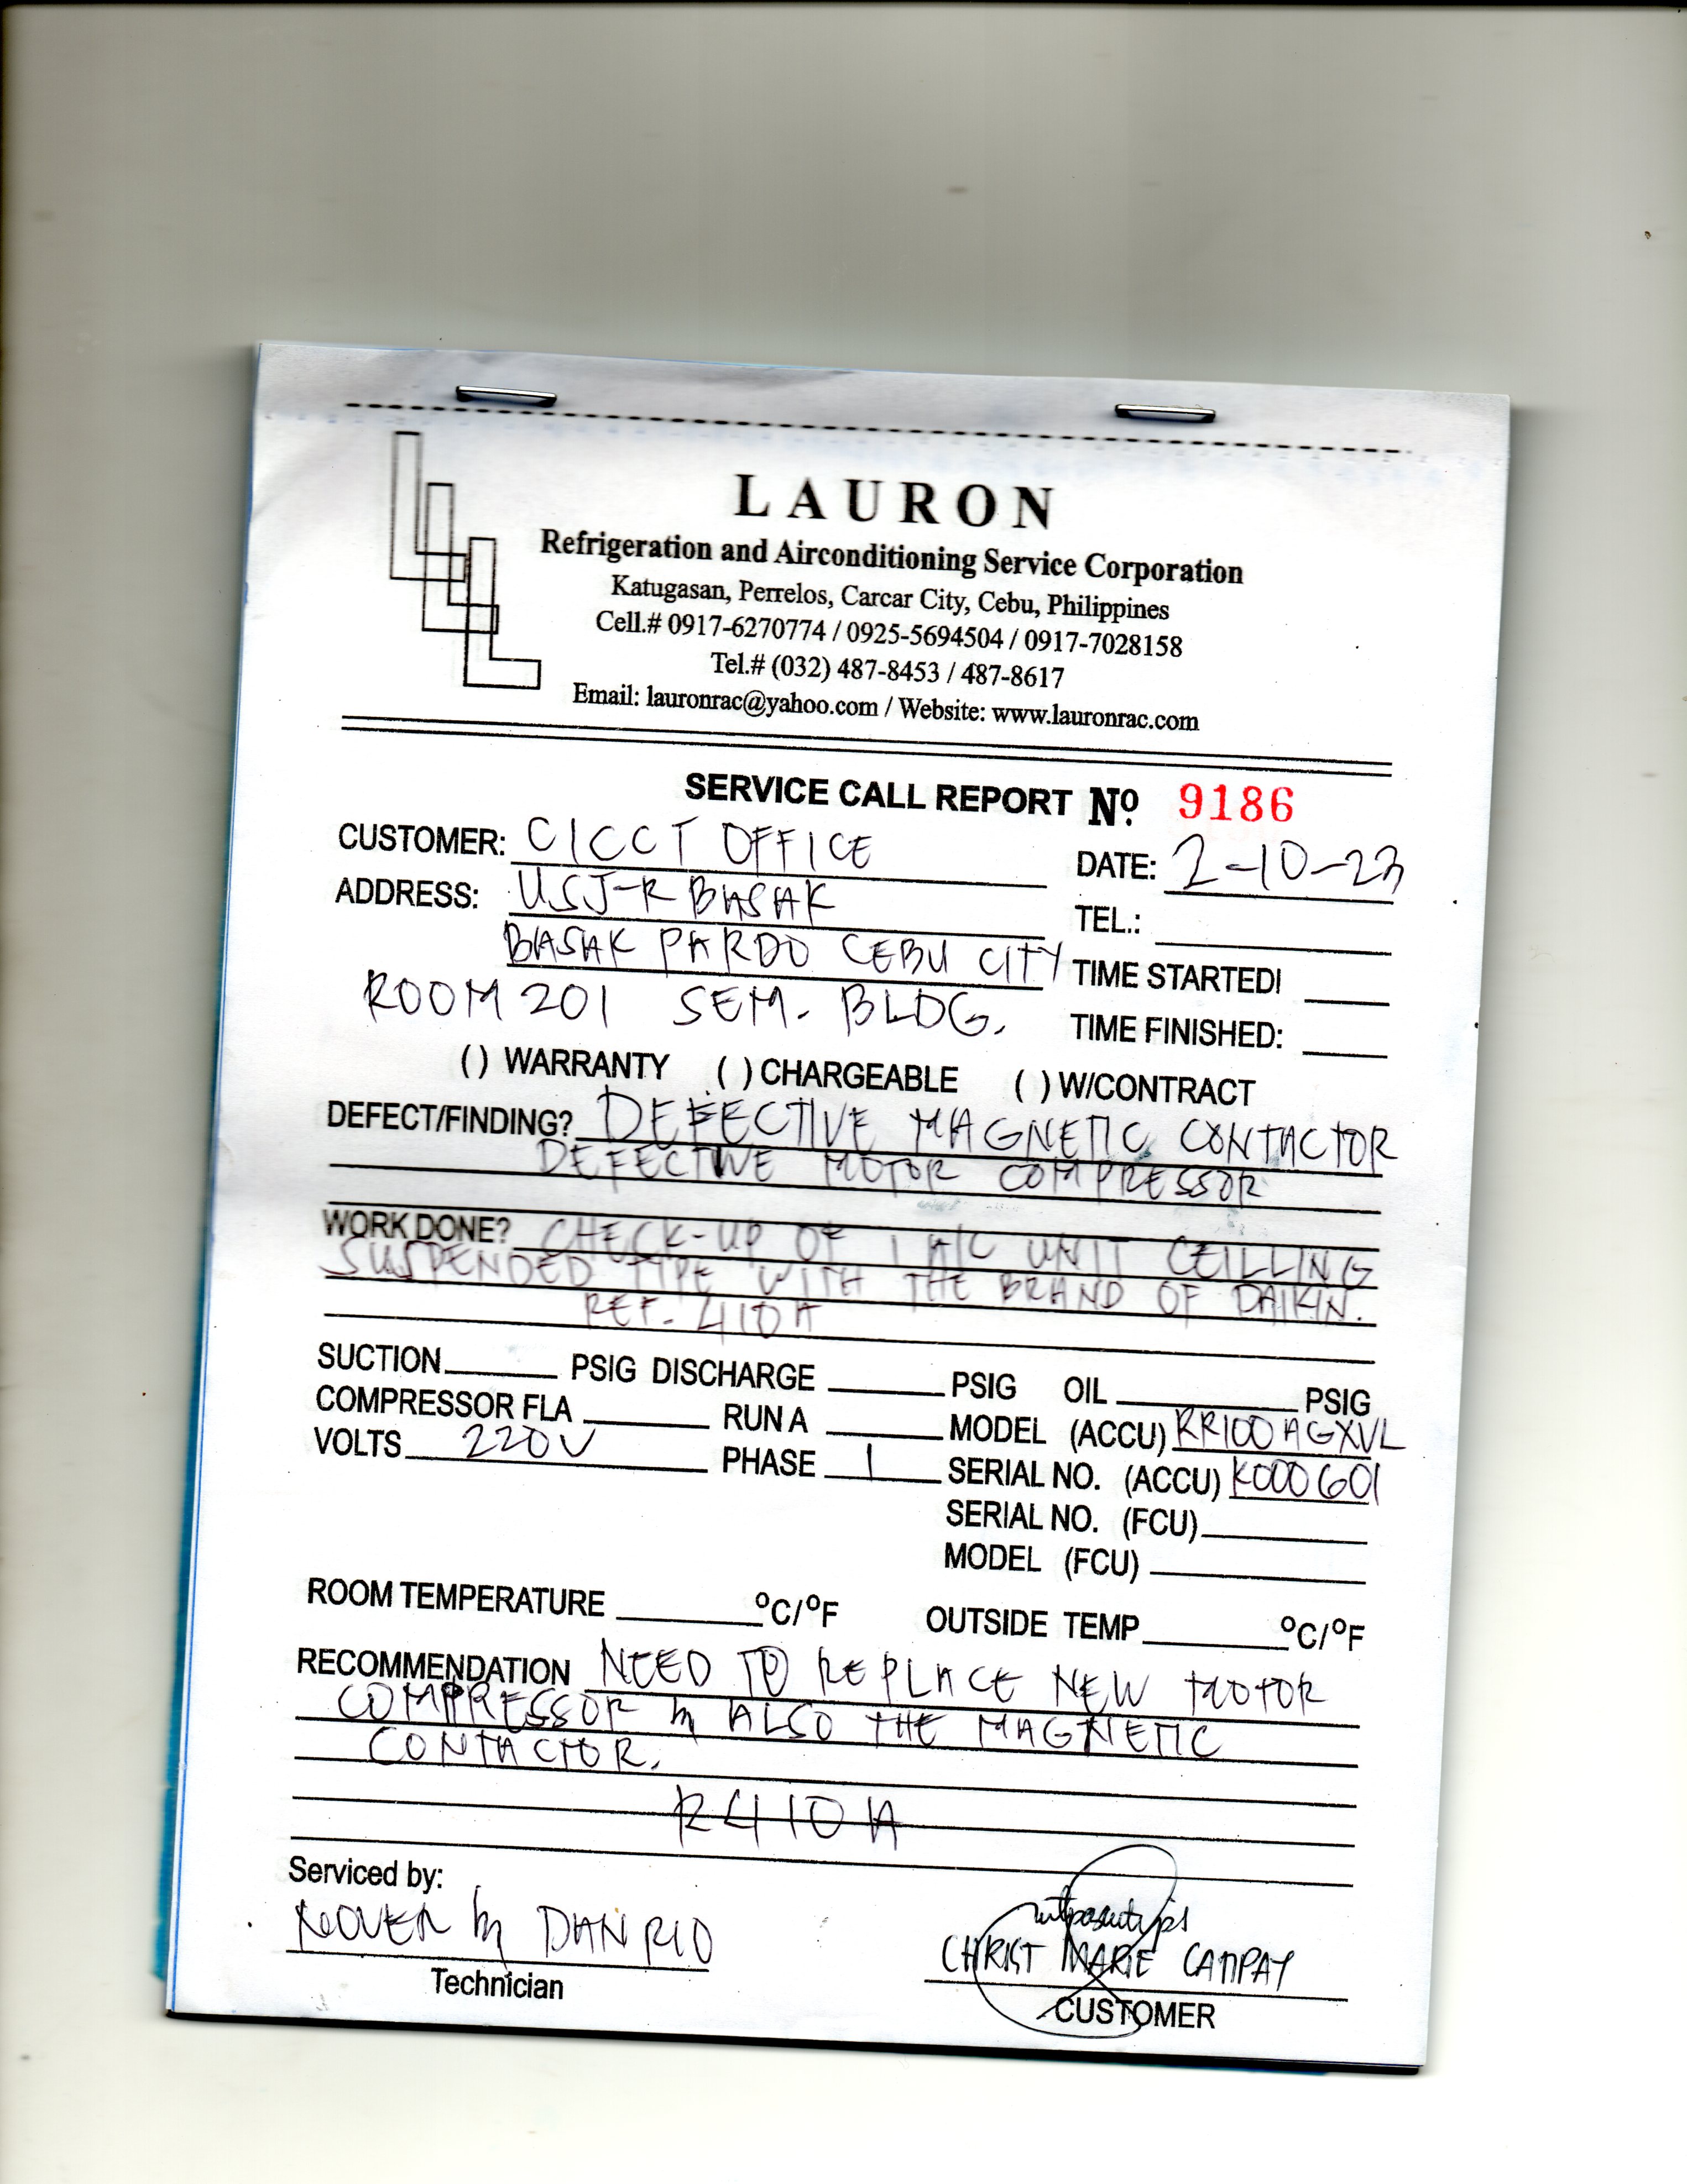 LAURON
Refrigeration and Airconditioning Service Corporation
Katugasan, Perrelos, Carcar City, Cebu, Philippines
Cell.# 0917-6270774 / 0925-5694504 / 0917-7028158
Tel.# (032) 487-8453 / 487-8617
Email: lauronrac@yahoo.com / Website: www.lauronrac.com
SERVICE CALL REPORT Nº 9186
CUSTOMER: CICCT OFFICE DATE: 2-10-23
ADDRESS: USJ-R BASAK TEL.:
BASAK PARDO CEBU CITY TIME STARTED
ROOM 201 SEM. BLDG. TIME FINISHED:
( ) WARRANTY ( ) CHARGEABLE ( ) W/CONTRACT
DEFECT/FINDING? DEFECTIVE MAGNETIC CONTACTOR
DEFECTIVE MOTOR COMPRESSOR
WORK DONE? CHECK-UP OF 1 A/C UNIT CEILLING
SUSPENDED TYPE WITH THE BRAND OF DAIKIN.
REF. 410A
SUCTION PSIG DISCHARGE PSIG OIL PSIG
COMPRESSOR FLA RUN A MODEL (ACCU) RR100AGXVL
VOLTS 220V PHASE 1 SERIAL NO. (ACCU) K000601
SERIAL NO. (FCU)
MODEL (FCU)
ROOM TEMPERATURE ºC/ºF OUTSIDE TEMP ºC/ºF
RECOMMENDATION NEED TO REPLACE NEW MOTOR
COMPRESSOR & ALSO THE MAGNETIC
CONTACTOR.
R410A
Serviced by:
& DANRIO
CHRIST MARIE CAMPAY
Technician
CUSTOMER